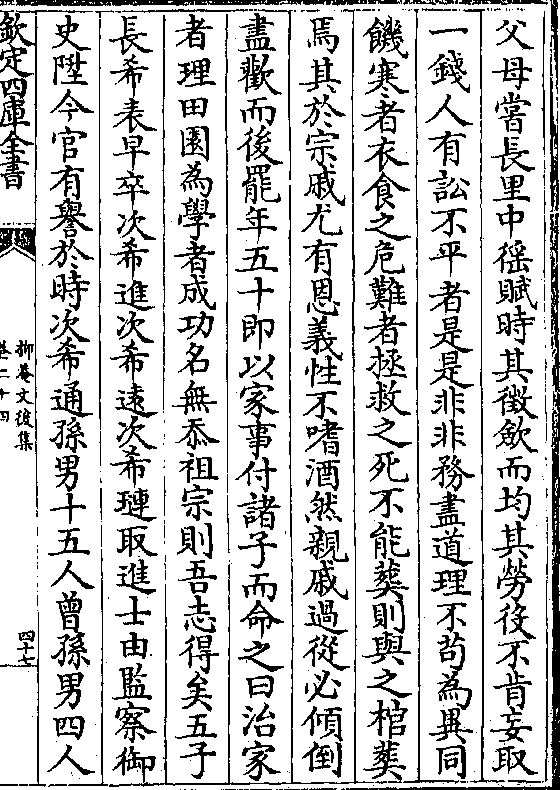 父母嘗長里中徭賦時其徵斂而均其勞役不肯妄取
一錢人有訟不平者是是非非務盡道理不苟為異同
饑寒者衣食之危難者拯救之死不能葬則與之棺葬
焉其於宗戚尤有恩義性不嗜酒然親戚過從必傾倒
盡歡而後罷年五十即以家事付諸子而命之曰治家
者理田園為學者成功名無忝祖宗則吾志得矣五子
長希表早卒次希進次希遠次希璉取進士由監察御
史陞今官有譽於時次希通孫男十五人曾孫男四人
欽定四庫全書
抑菴文後集
卷二十四
四十七